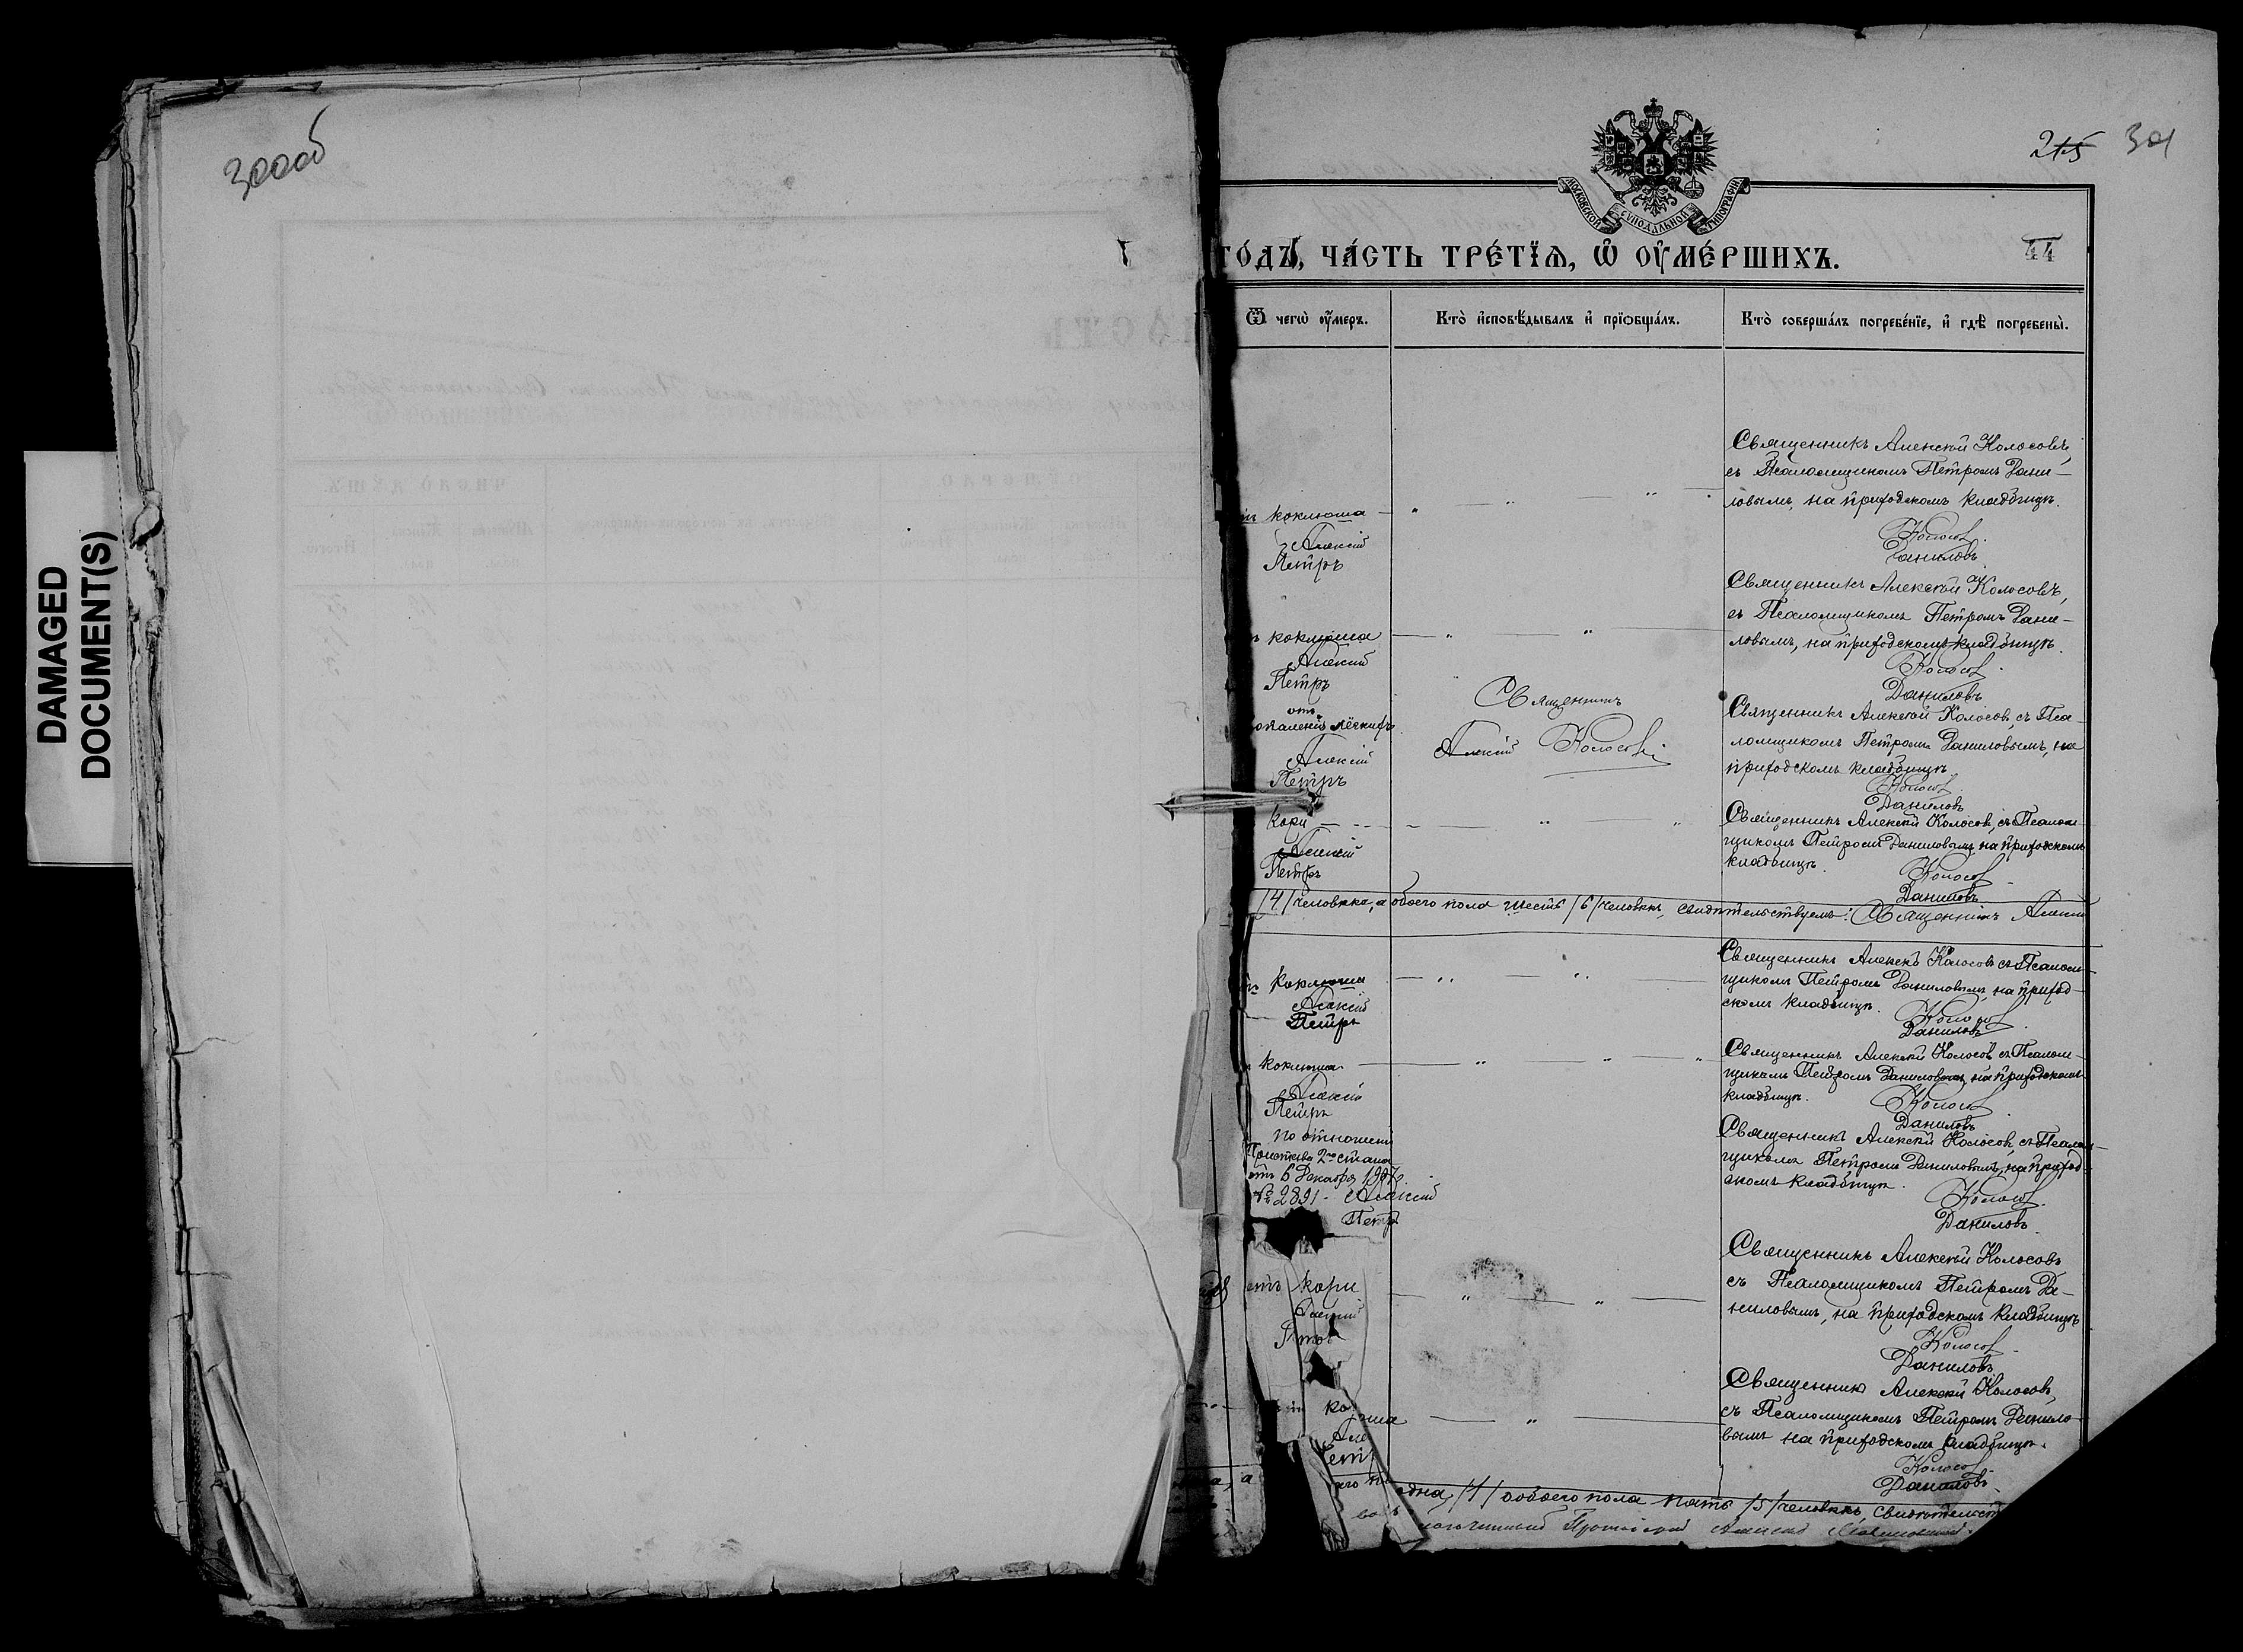 300об
DAMAGED
DOCUMENT(S)
215 301
МОСКОВСКОЙ СѴНОДАЛЬНОЙ ТИПОГРАФІИ
ГО́ДЪ, ЧА́СТЬ ТРЕ́ТЇѦ, Ѡ҆ ОУ҆МЕ́РШИХЪ.
44
Ѿ чегѡ̀ оу҆́меръ.
Кто̀ и҆сповѣ́дывалъ и҆ прїѻбща́лъ.
Кто̀ соверша́лъ погребе́нїе, и҆ гдѣ̀ погребены̀.
коклюша
Алексій
Петръ
Священникъ Алексѣй Колосовъ,
съ Псаломщикомъ Петромъ Дани-
ловымъ, на приходскомъ кладбищѣ.
Колосов
Даниловъ
коклюша
Алексій
Петръ
Священникъ Алексѣй Колосовъ,
съ Псаломщикомъ Петромъ Дани-
ловымъ, на приходскомъ кладбищѣ.
Колосов
Даниловъ
отъ
легкихъ
Алексій
Петръ
Священникъ
Алексій Колосовъ
Священникъ Алексѣй Колосов, съ Пса-
ломщикомъ Петромъ Даниловымъ, на
приходскомъ кладбищѣ.
Колосов
Даниловъ
кори
Алексій
Петръ
Священникъ Алексѣй Колосов, съ Псалом-
щикомъ Петромъ Даниловымъ на приходскомъ
кладбищѣ.
Колосов
Даниловъ
/4/ человѣка, а обоего пола шесть /6/ человѣкъ, свидѣтельствуемъ: Священникъ Алексій
коклюша
Алексій
Петръ
Священникъ Алексѣй Колосовъ съ Псалом-
щикомъ Петромъ Даниловымъ, на приход-
скомъ кладбищѣ.
Колосов
Даниловъ
коклюша
Алексій
Петръ
Священникъ Алексѣй Колосовъ съ Псалом-
щикомъ Петромъ Даниловымъ, на приходскомъ
кладбищѣ.
Колосов
Даниловъ
по отношенію
Пристава 2го стана
отъ 6 Декабря 1907г.
№ 2891. Алексій
Петр
Священникъ Алексѣй Колосов, съ Псалом-
щикомъ Петромъ Даниловымъ, на приход-
скомъ кладбищѣ.
Колосов
Даниловъ
отъ кори
Священникъ Алексѣй Колосовъ
съ Псаломщикомъ Петромъ Да-
ниловымъ, на приходскомъ кладбищѣ
Колосов
Даниловъ
ко
юша
Але
Петр
Священник Алексѣй Колосовъ,
съ Псаломщикомъ Петромъ Данило-
вымъ на приходскомъ кладбищѣ.
Колосов
Даниловъ
одна /1/ а обоего пола пять /5/ человѣкъ, свидѣтельст
Протоіерей